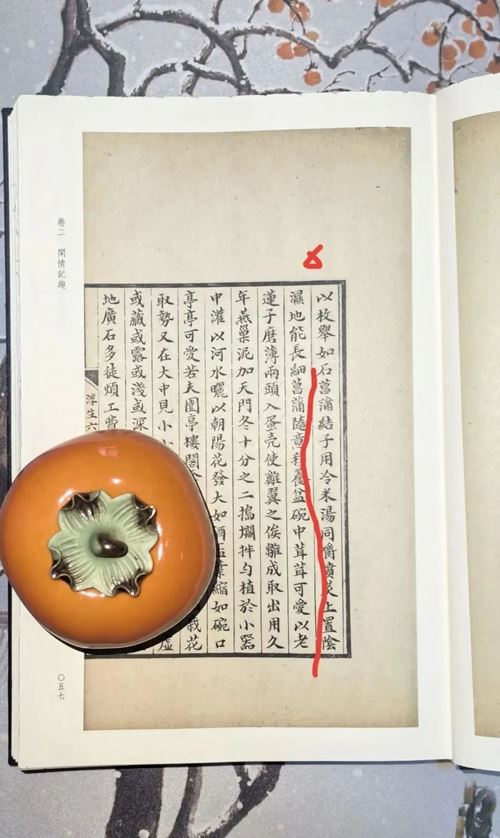 以枚舉如石菖蒲結子用冷米湯同嚼噴炭上置陰
濕地能長細菖蒲隨意移養盆碗中茸茸可愛以老
蓮子磨薄兩頭入蛋壳使雞翼之俟雛成取出用久
年燕巢泥加天門冬十分之二搗爛拌勻植於小器
中灌以河水曬以朝陽花發大如酒杯葉縮如碗口
亭亭可愛若夫園亭樓閣栽花
取勢又在大中見小小虛
或藏或露或淺或深
地廣石多徒煩工費
浮生六
卷二 閑情記趣
〇五七